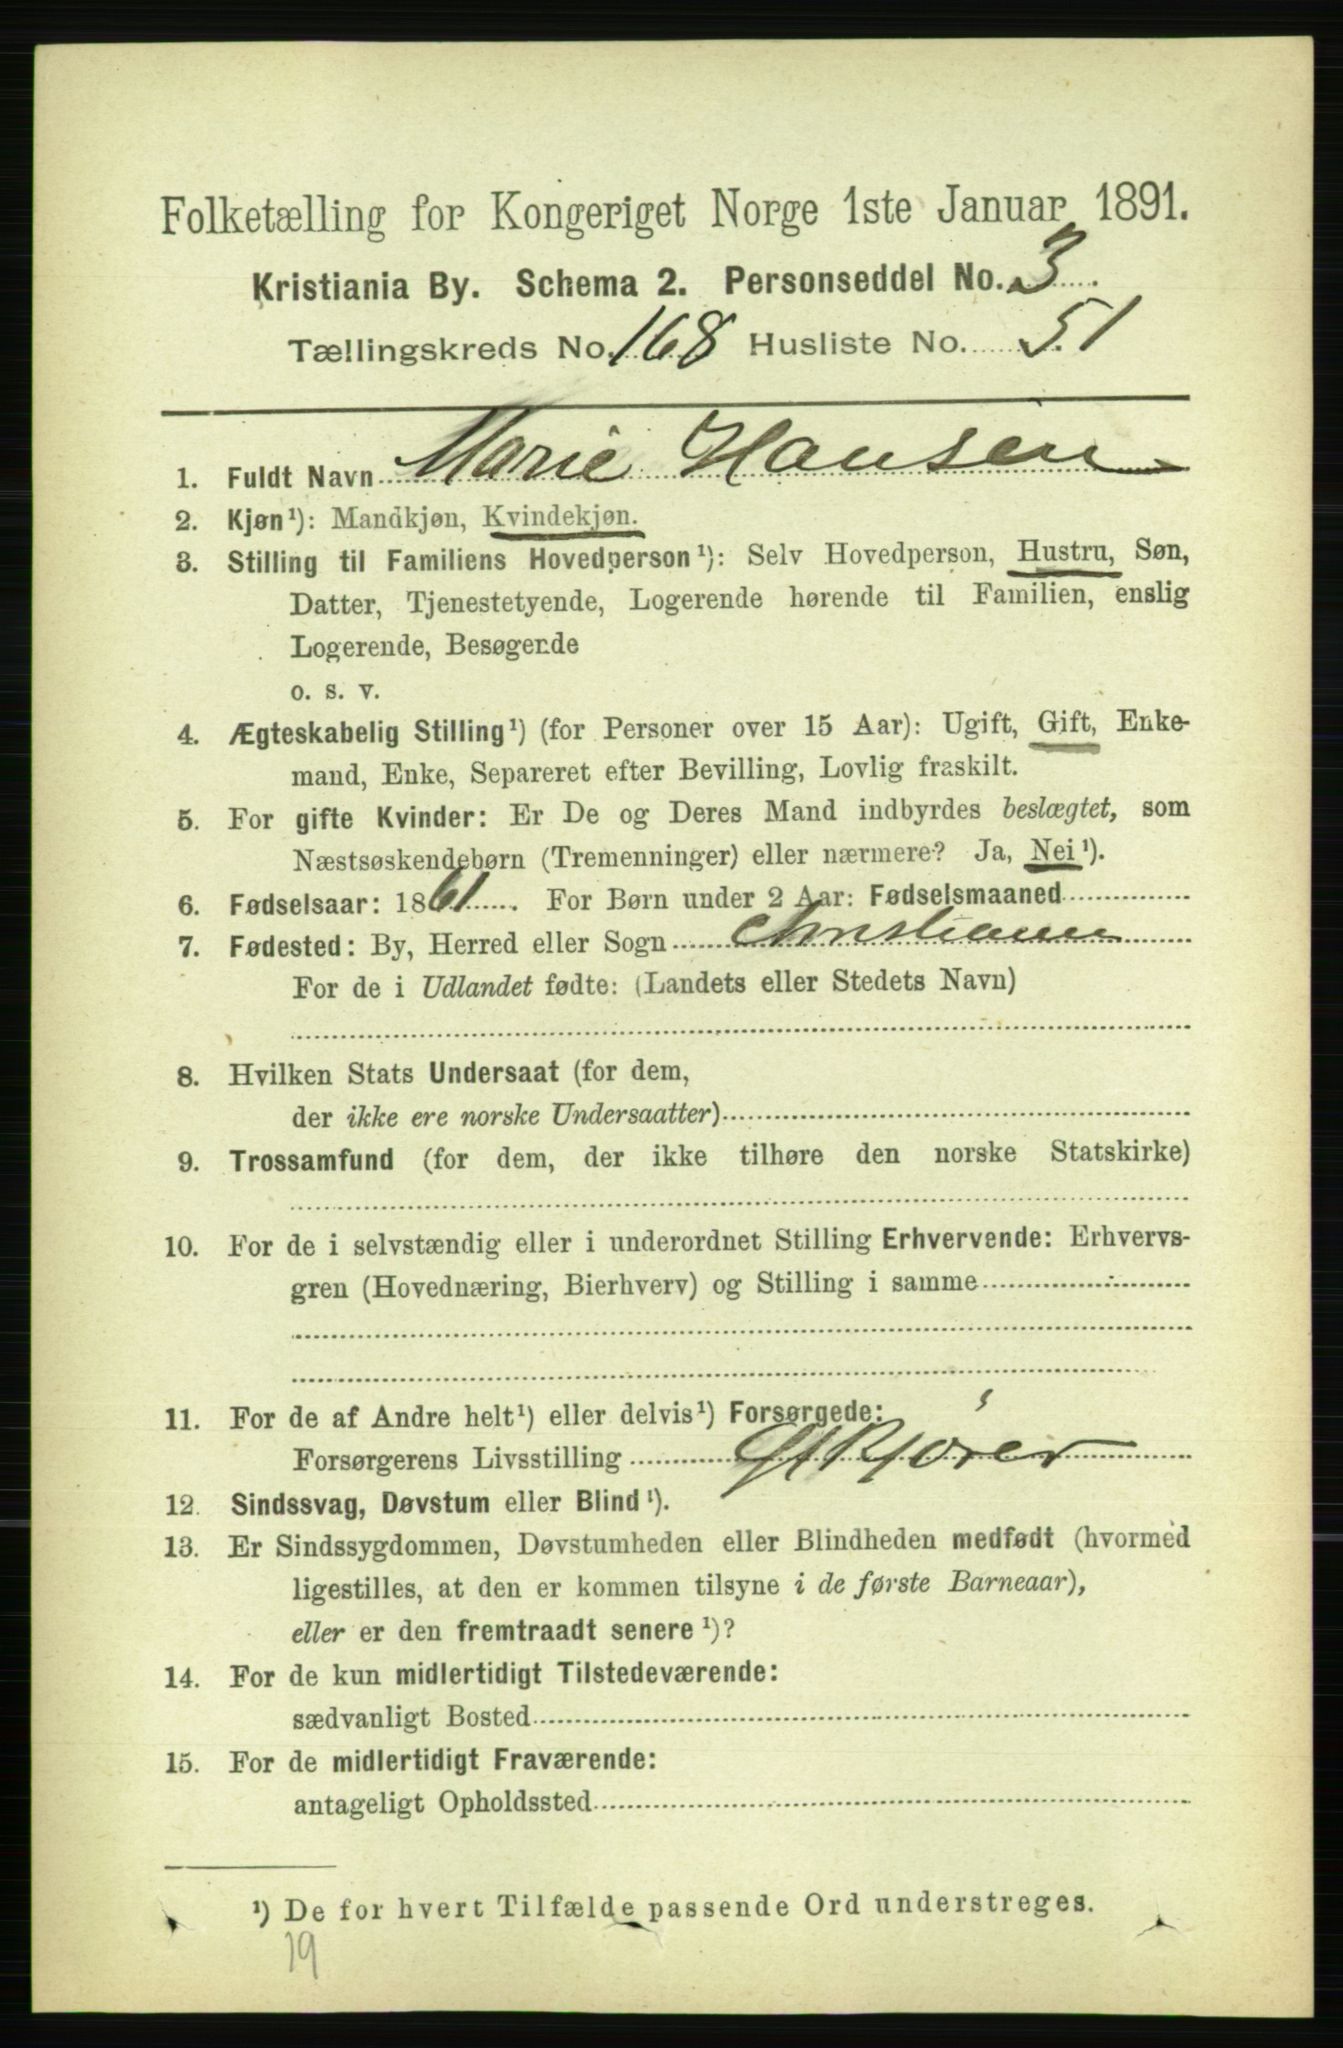 Folketælling for Kongeriget Norge 1ste Januar 1891.
Kristiania By. Schema 2. Personseddel No. 3
Tællingskreds No. 168 Husliste No. 51
1. Fuldt Navn Marie Hansen
2. Kjøn¹): Mandkjøn, Kvindekjøn.
3. Stilling til Familiens Hovedperson¹): Selv Hovedperson, Hustru, Søn,
Datter, Tjenestetyende, Logerende hørende til Familien, enslig
Logerende, Besøgende
o. s. v.
4. Ægteskabelig Stilling¹) (for Personer over 15 Aar): Ugift, Gift, Enke-
mand, Enke, Separeret efter Bevilling, Lovlig fraskilt.
5. For gifte Kvinder: Er De og Deres Mand indbyrdes beslægtet, som
Næstsøskendebørn (Tremenninger) eller nærmere? Ja, Nei¹).
6. Fødselsaar: 1861. For Børn under 2 Aar: Fødselsmaaned
7. Fødested: By, Herred eller Sogn
For de i Udlandet fødte: (Landets eller Stedets Navn)
8. Hvilken Stats Undersaat (for dem,
der ikke ere norske Undersaatter)
9. Trossamfund (for dem, der ikke tilhøre den norske Statskirke)
10. For de i selvstændig eller i underordnet Stilling Erhvervende: Erhvervs-
gren (Hovednæring, Bierhverv) og Stilling i samme
11. For de af Andre helt¹) eller delvis¹) Forsørgede:
Forsørgerens Livsstilling
12. Sindssvag, Døvstum eller Blind¹).
13. Er Sindssygdommen, Døvstumheden eller Blindheden medfødt (hvormed
ligestilles, at den er kommen tilsyne i de første Barneaar),
eller er den fremtraadt senere¹)?
14. For de kun midlertidigt Tilstedeværende:
sædvanligt Bosted
15. For de midlertidigt Fraværende:
antageligt Opholdssted
¹) De for hvert Tilfælde passende Ord understreges.
19